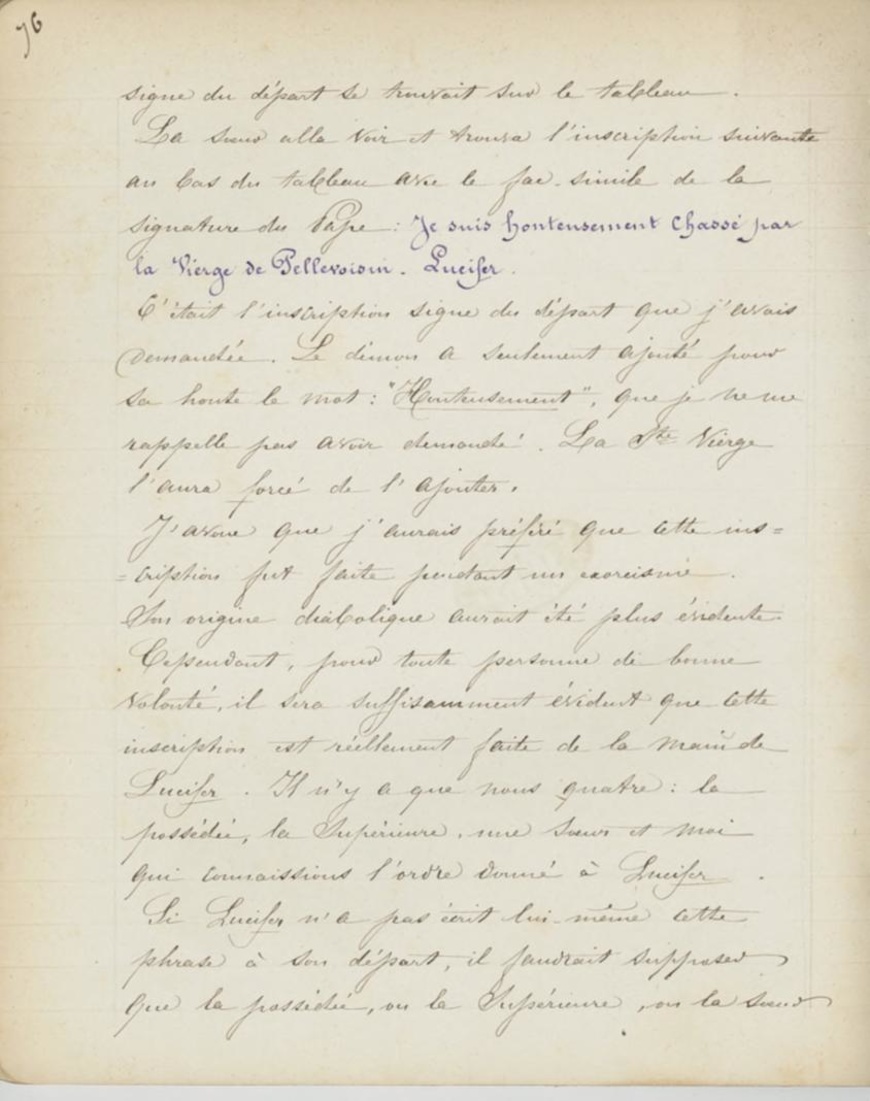 76
signe du départ se trouvait sur le tableau.
La sœur alla voir et trouva l'inscription suivante
au bas du tableau avec le fac-simile de la
signature du Pape : Je suis honteusement chassé par
la Vierge de Pellevoisin. Lucifer.
C'était l'inscription signe du départ que j'avais
demandée. Le démon a seulement ajouté pour
sa honte le mot : "Honteusement", que je ne me
rappelle pas avoir demandé. La Ste Vierge
l'aura forcé de l'ajouter.
J'avoue que j'aurais préféré que cette ins=
=cription fut faite pendant un exorcisme.
Son origine diabolique aurait été plus évidente.
Cependant, pour toute personne de bonne
volonté, il sera suffisamment évident que cette
inscription est réellement faite de la main de
Lucifer. Il n'y a que nous quatre : la
possédée, la Supérieure, une sœur et moi
qui connaissions l'ordre donné à Lucifer.
Si Lucifer n'a pas écrit lui-même cette
phrase à son départ, il faudrait supposer
que la possédée, ou la Supérieure, ou la sœur